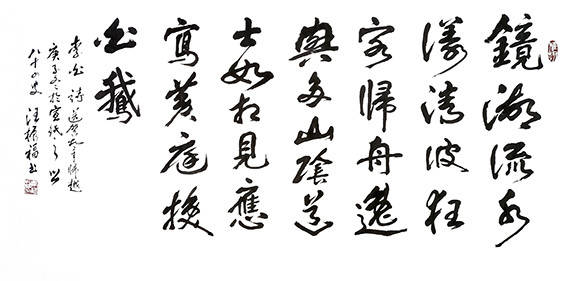 鏡湖流水
漾清波狂
客歸舟逸
興多山陰道
士如相見應
寫黄庭換
白鵝
李白詩送賀歸越
庚子冬於
八十四叟 汪振福書